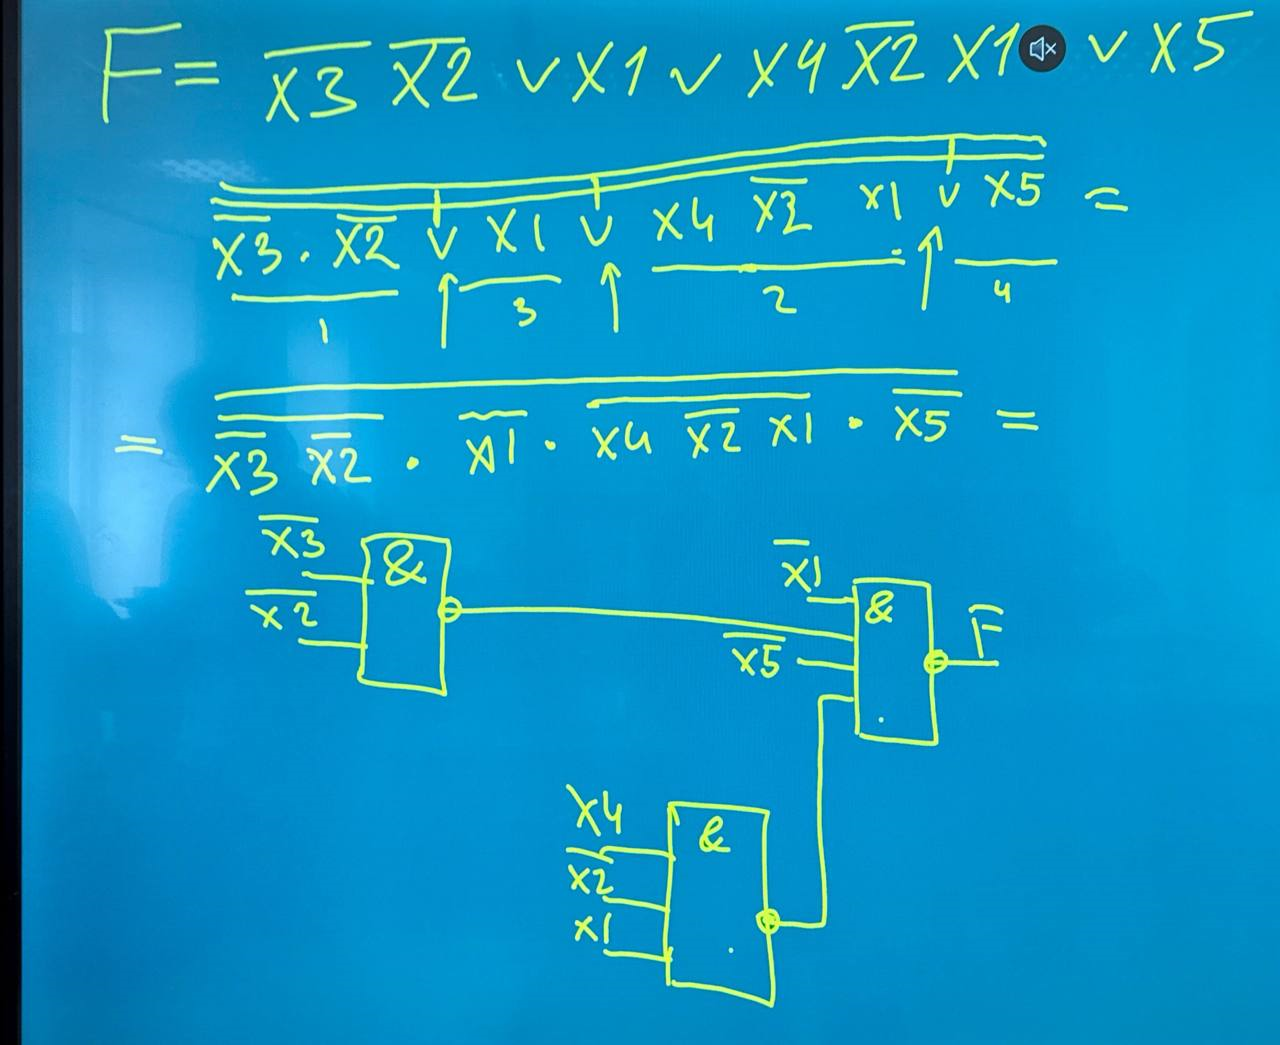 F = x̅3̅ x̅2̅ v x1 v x4 x̅2̅ x1 v x5
x̅3̅ · x̅2̅ v x1 v x4 x̅2̅ x1 v x5 =
1 3 2 4
= x̅3̅ x̅2̅ · x̅1̅ · x4 x̅2̅ x1 · x̅5̅ =
x̅3̅
x̅2̅
&
x̅1
x̅5̅
&
F̅
x4
x̅2̅
x1
&